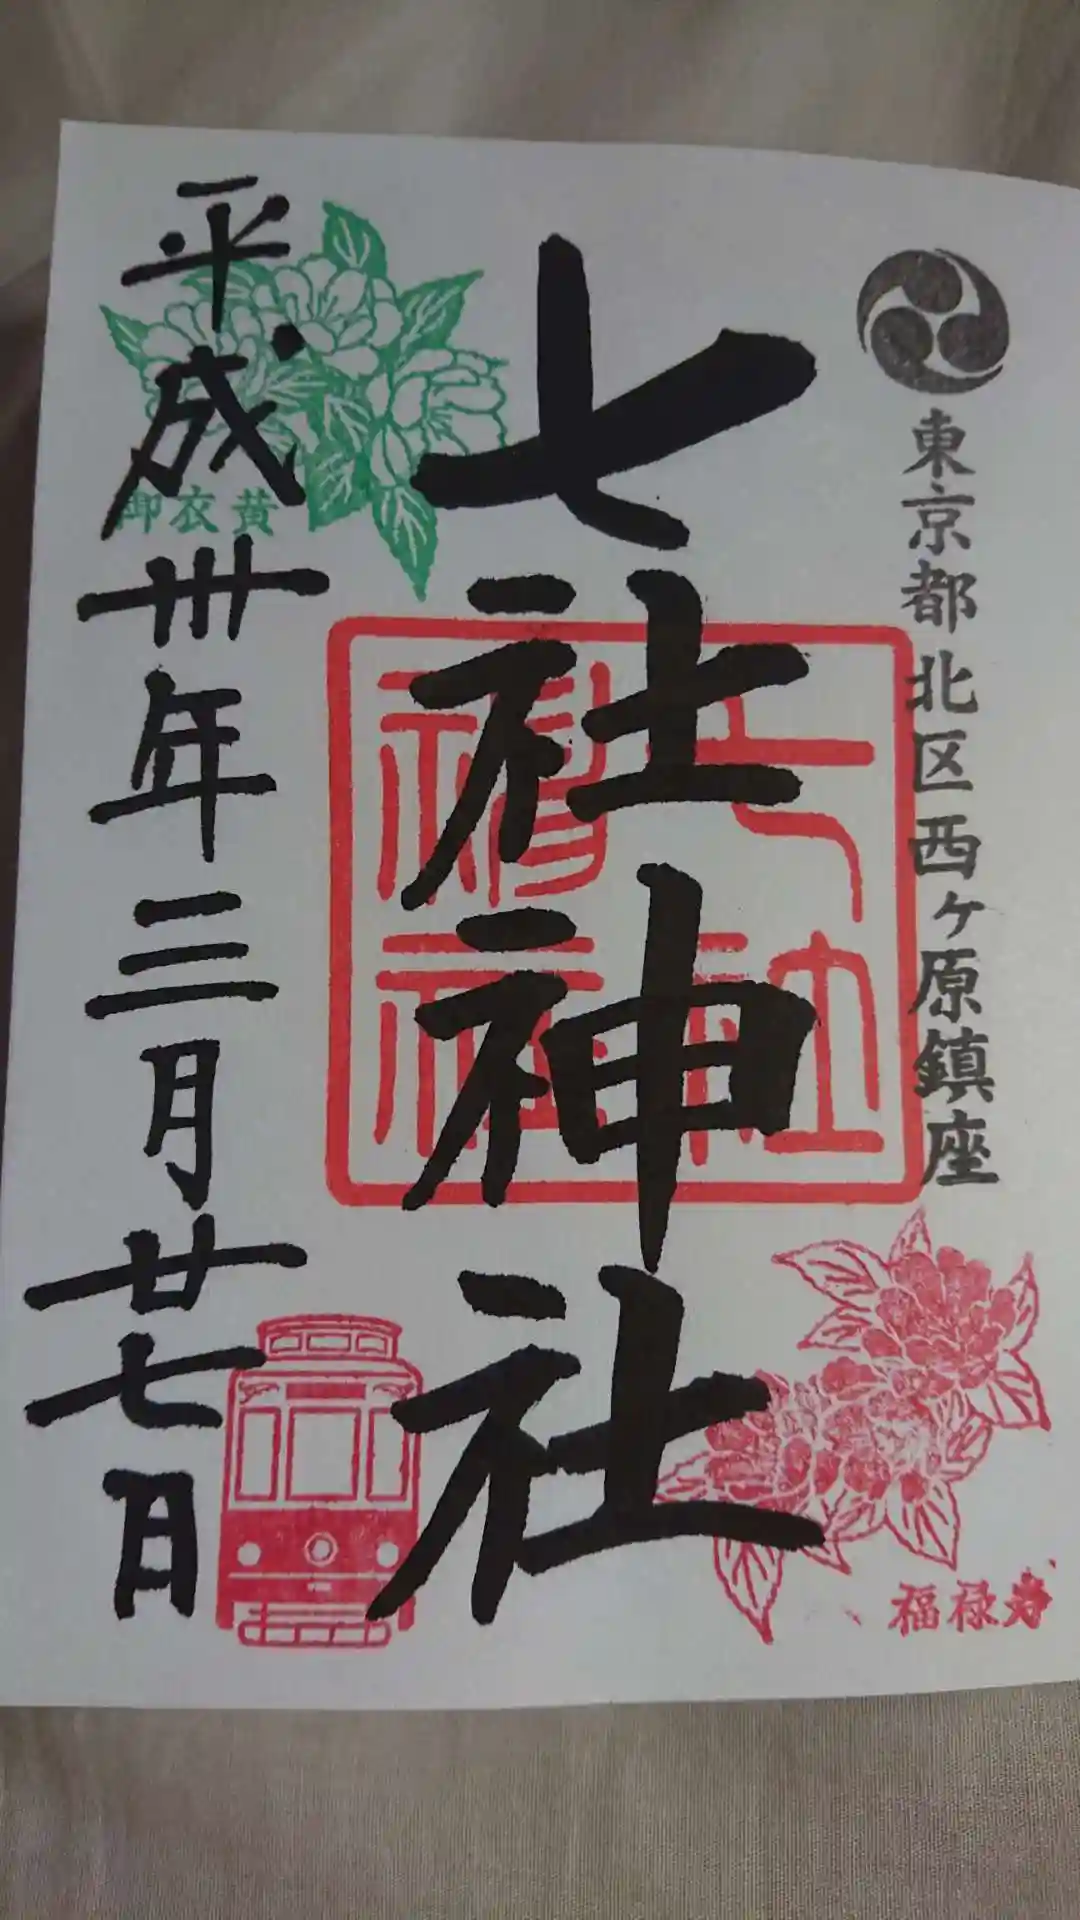 東京都北区西ヶ原鎮座
七社神社
七社神社
平成丗年三月廿七日
御衣黄
福禄寿